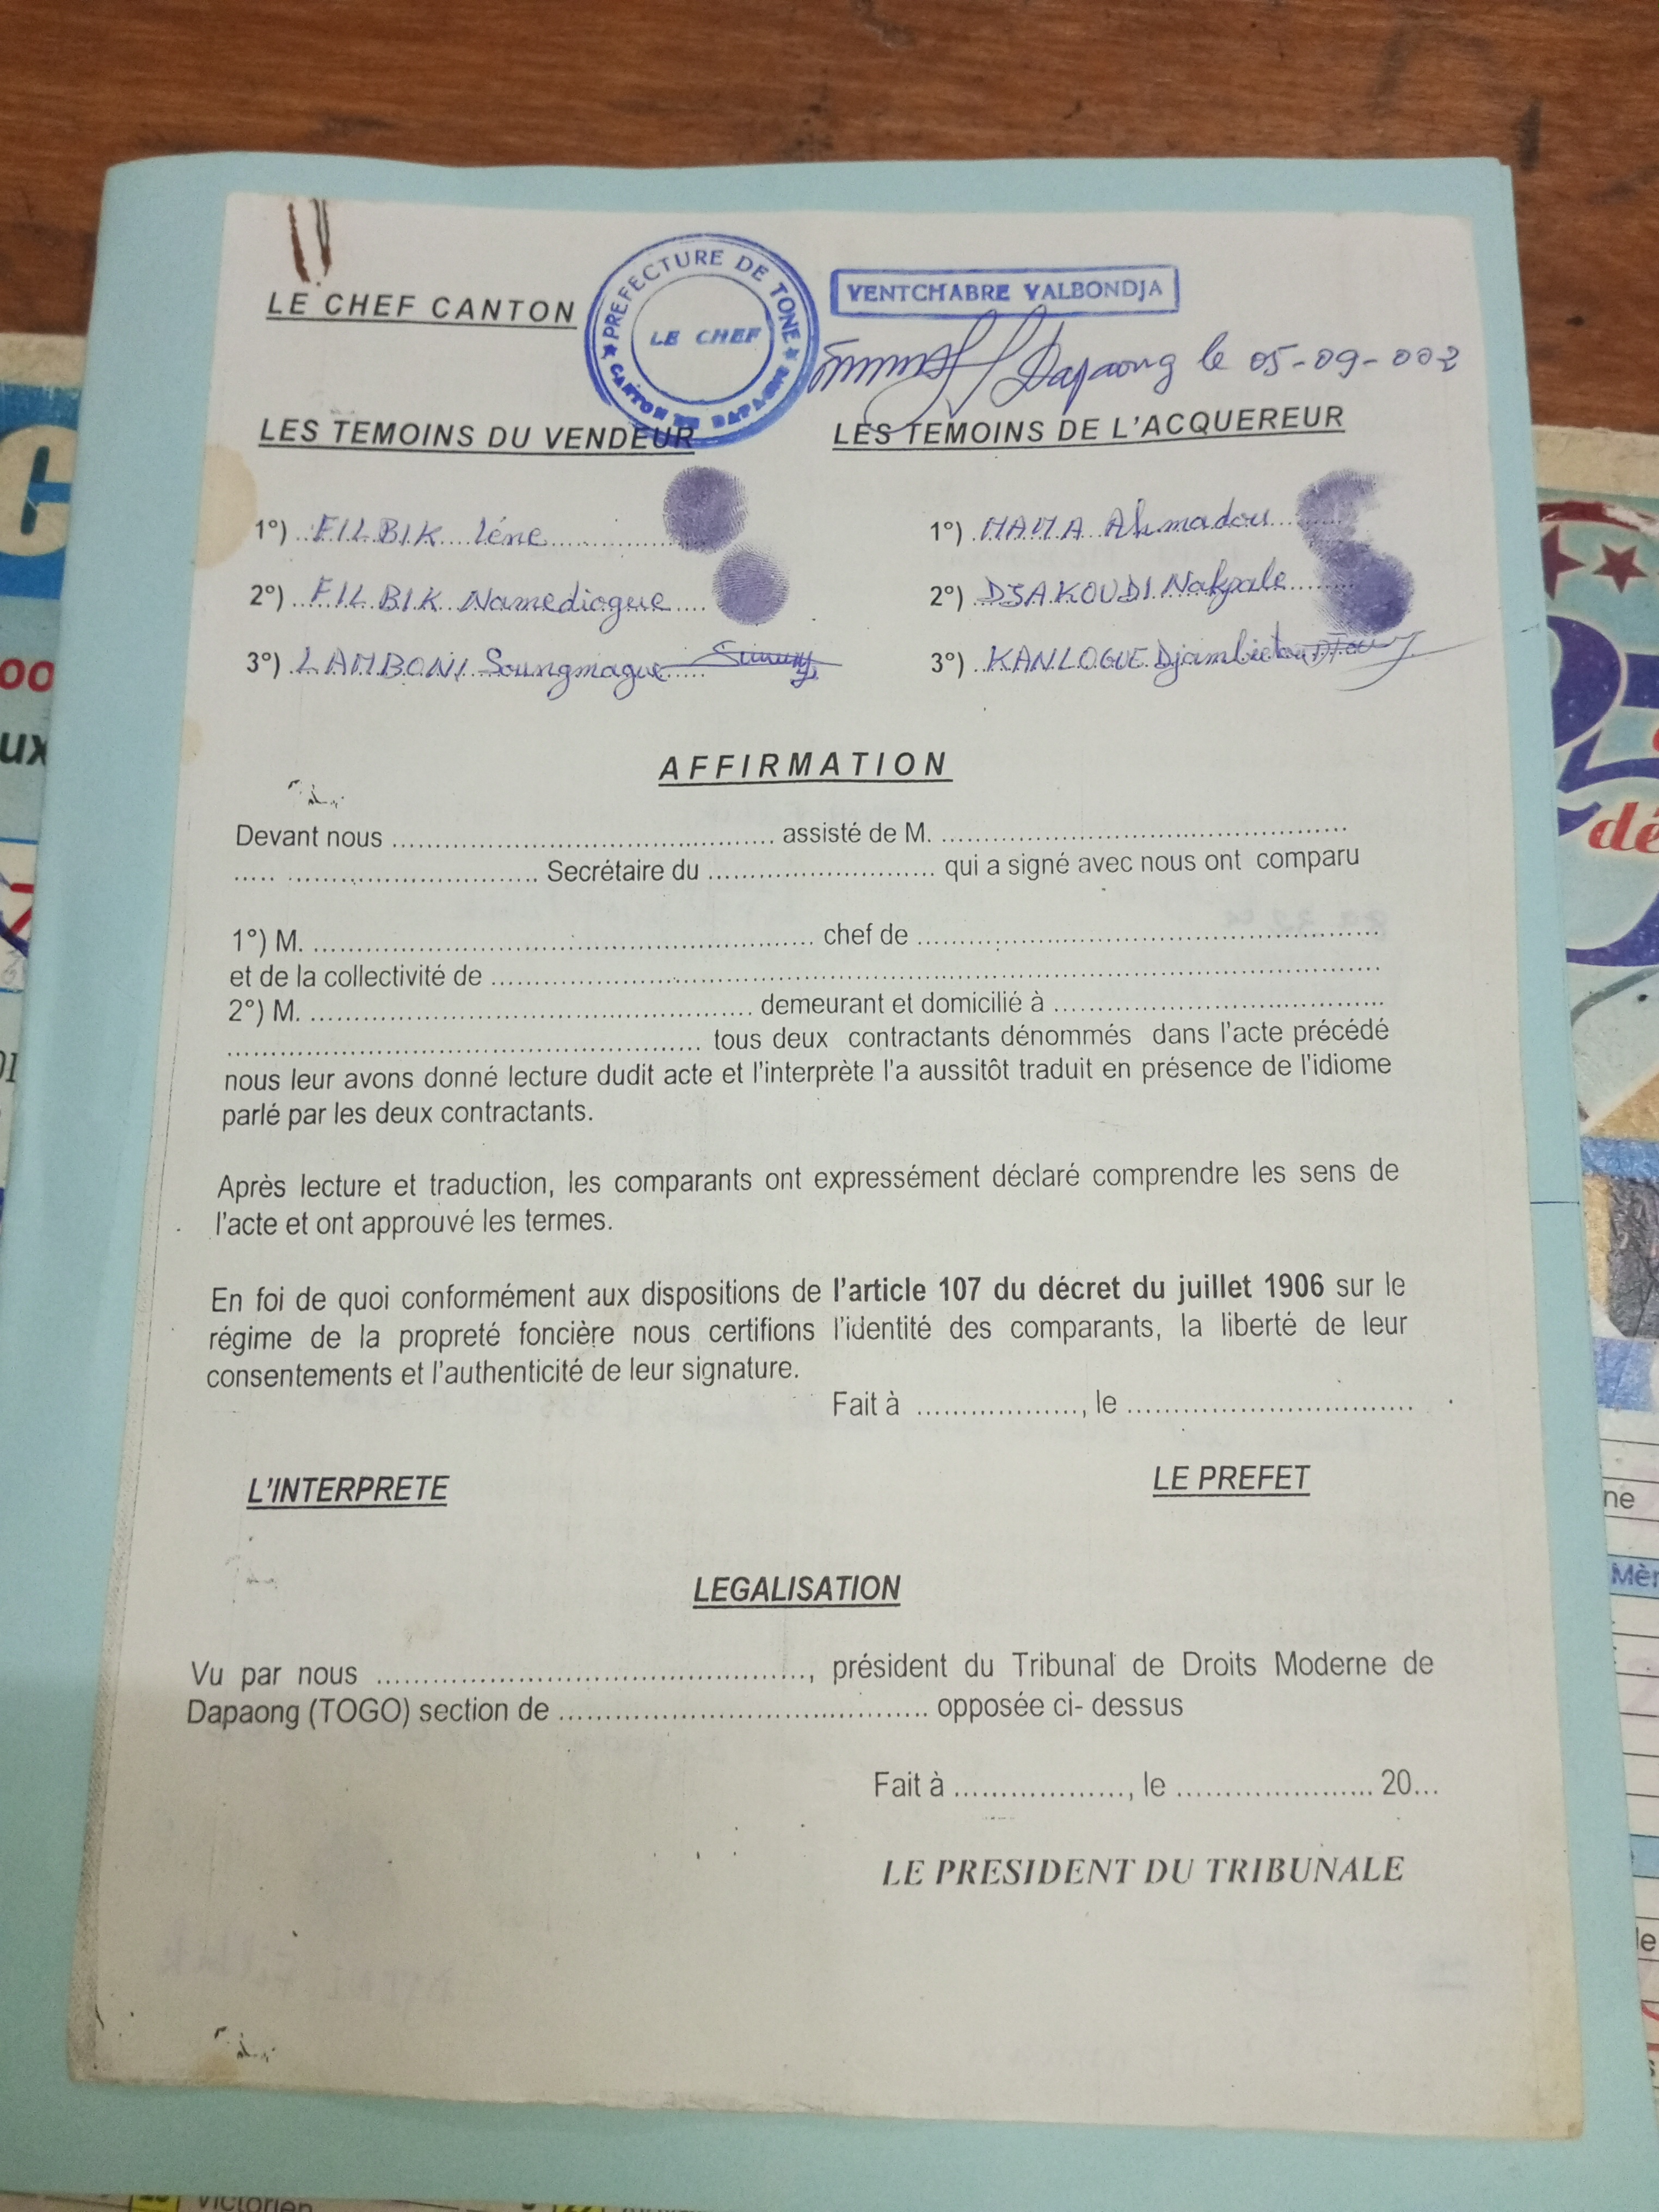 LE CHEF CANTON
PREFECTURE DE TONE
LE CHEF
CANTON DE DAPAONG
YENTCHABRE YALBONDJA
Dapaong le 05-09-002
LES TEMOINS DU VENDEUR
LES TEMOINS DE L'ACQUEREUR
1°) FILBIK Iéne
1°) MAMA Ahmadou
2°) FILBIK Namediogue
2°) DJAKOUDI Nakpale
3°) LAMBONI Soungmague
3°) KANLOGUE Djambietou
AFFIRMATION
Devant nous .......... assisté de M. ..........
.......... Secrétaire du .......... qui a signé avec nous ont comparu
1°) M. .......... chef de ..........
et de la collectivité de ..........
2°) M. .......... demeurant et domicilié à ..........
.......... tous deux contractants dénommés dans l'acte précédé
nous leur avons donné lecture dudit acte et l'interprète l'a aussitôt traduit en présence de l'idiome
parlé par les deux contractants.
Après lecture et traduction, les comparants ont expressément déclaré comprendre les sens de
l'acte et ont approuvé les termes.
En foi de quoi conformément aux dispositions de l'article 107 du décret du juillet 1906 sur le
régime de la propreté foncière nous certifions l'identité des comparants, la liberté de leur
consentements et l'authenticité de leur signature.
Fait à .........., le ..........
L'INTERPRETE
LE PREFET
LEGALISATION
Vu par nous .........., président du Tribunal de Droits Moderne de
Dapaong (TOGO) section de .......... opposée ci- dessus
Fait à .........., le .......... 20...
LE PRESIDENT DU TRIBUNALE
oo
ux
dé
ne
Mèr
le
Victorien